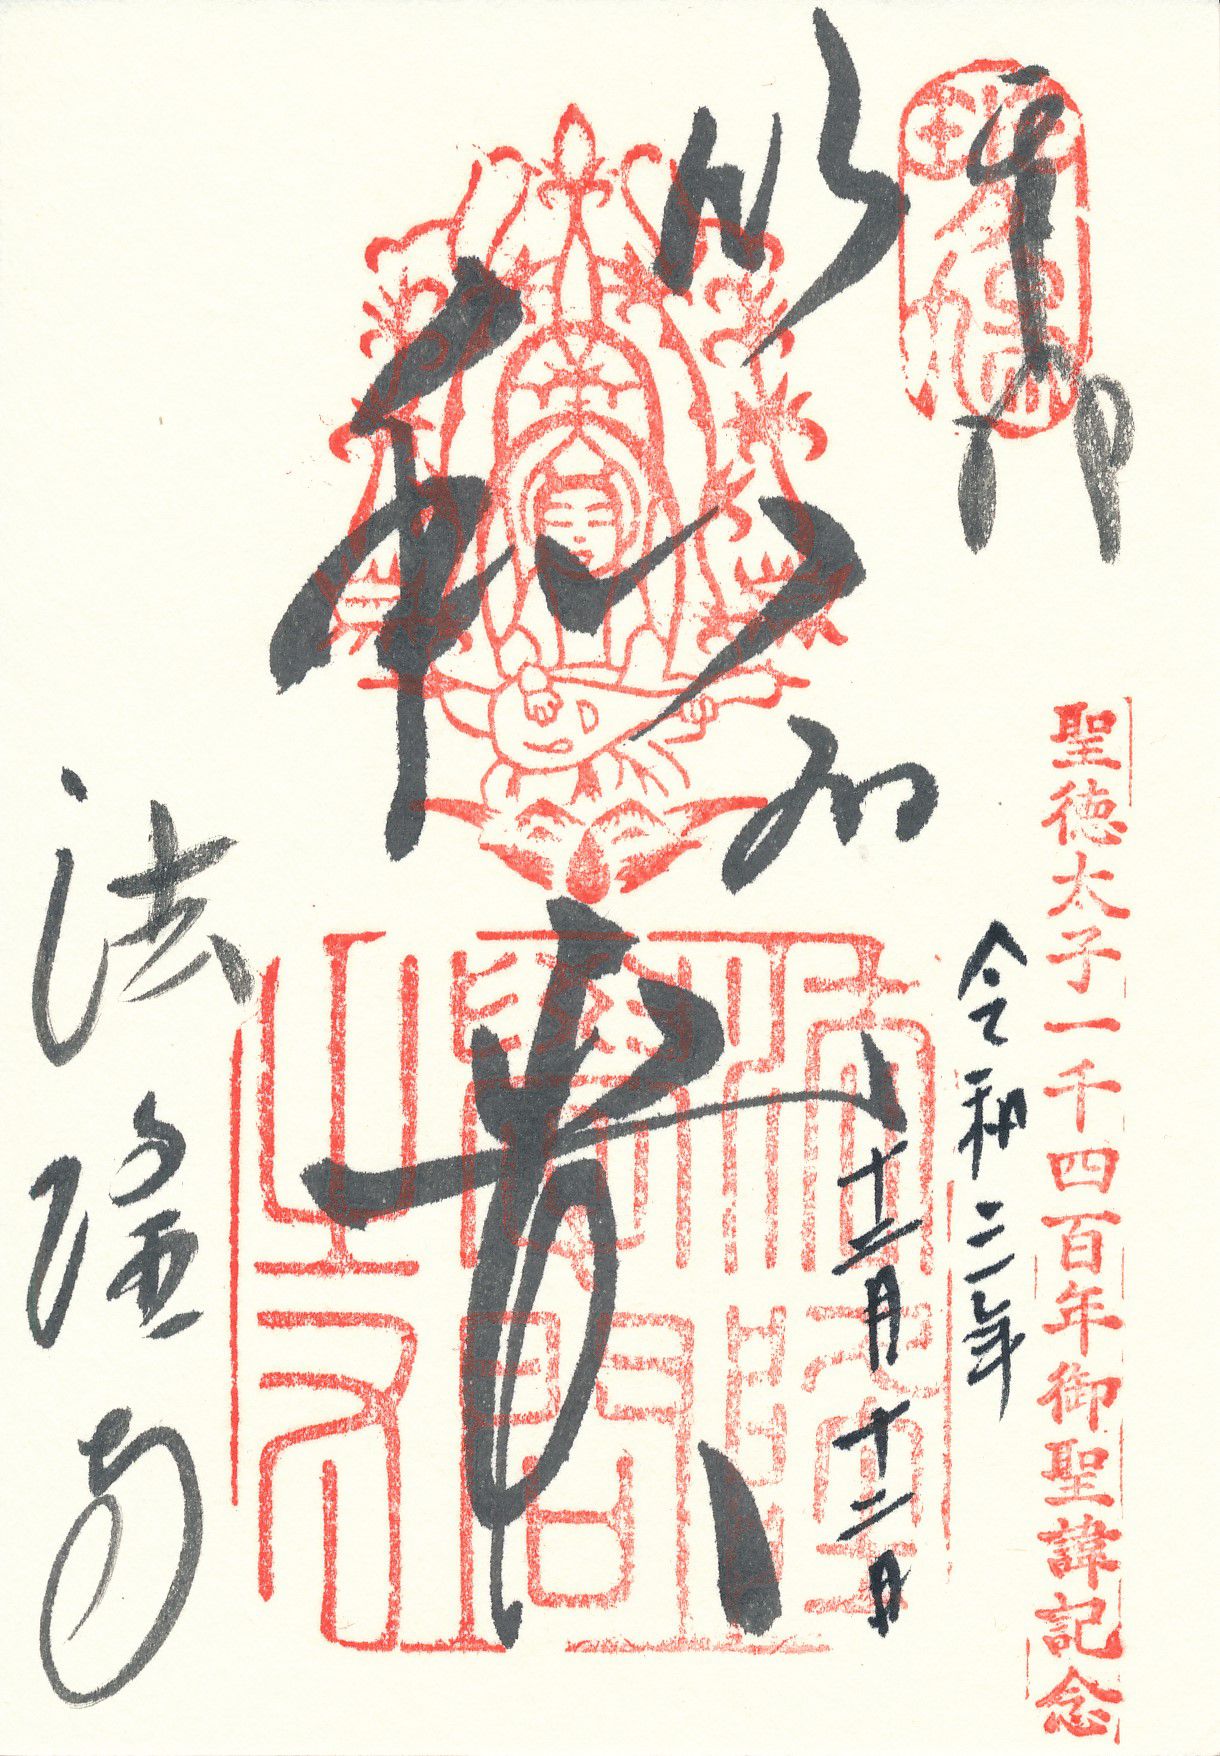 奉拝
以和為貴
聖徳太子一千四百年御聖諱記念
令和三年
十二月十二日
法隆寺